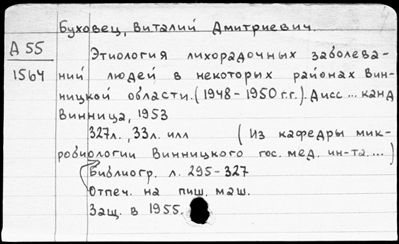 Буховец, Виталий Дмитриевич.
А 55
1564
Этиология лихорадочных заболева-
ний людей в некоторых районах Вин-
ницкой области. (1948-1950 г.г.). Дисс ... канд
Винница, 1953
327л., 33л. илл (Из кафедры мик-
робиологии Винницкого гос. мед. ин-та....)
Библиогр. л. 295-327
Отпеч. на пиш. маш.
Защ. в 1955.